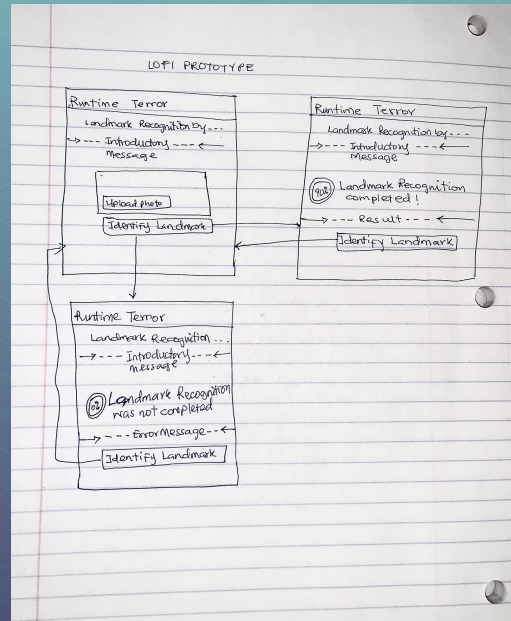 LOFI PROTOTYPE
Runtime Terror
Landmark Recognition by...
--- Introductory ---
Message
Upload photo
Identify Landmark
Runtime Terror
Landmark Recognition by---
--- Introductory ---
Message
90% Landmark Recognition
completed!
--- Result ---
Identify Landmark
Runtime Terror
Landmark Recognition...
--- Introductory ---
message
0% Landmark Recognition
was not completed
--- Error Message --
Identify Landmark